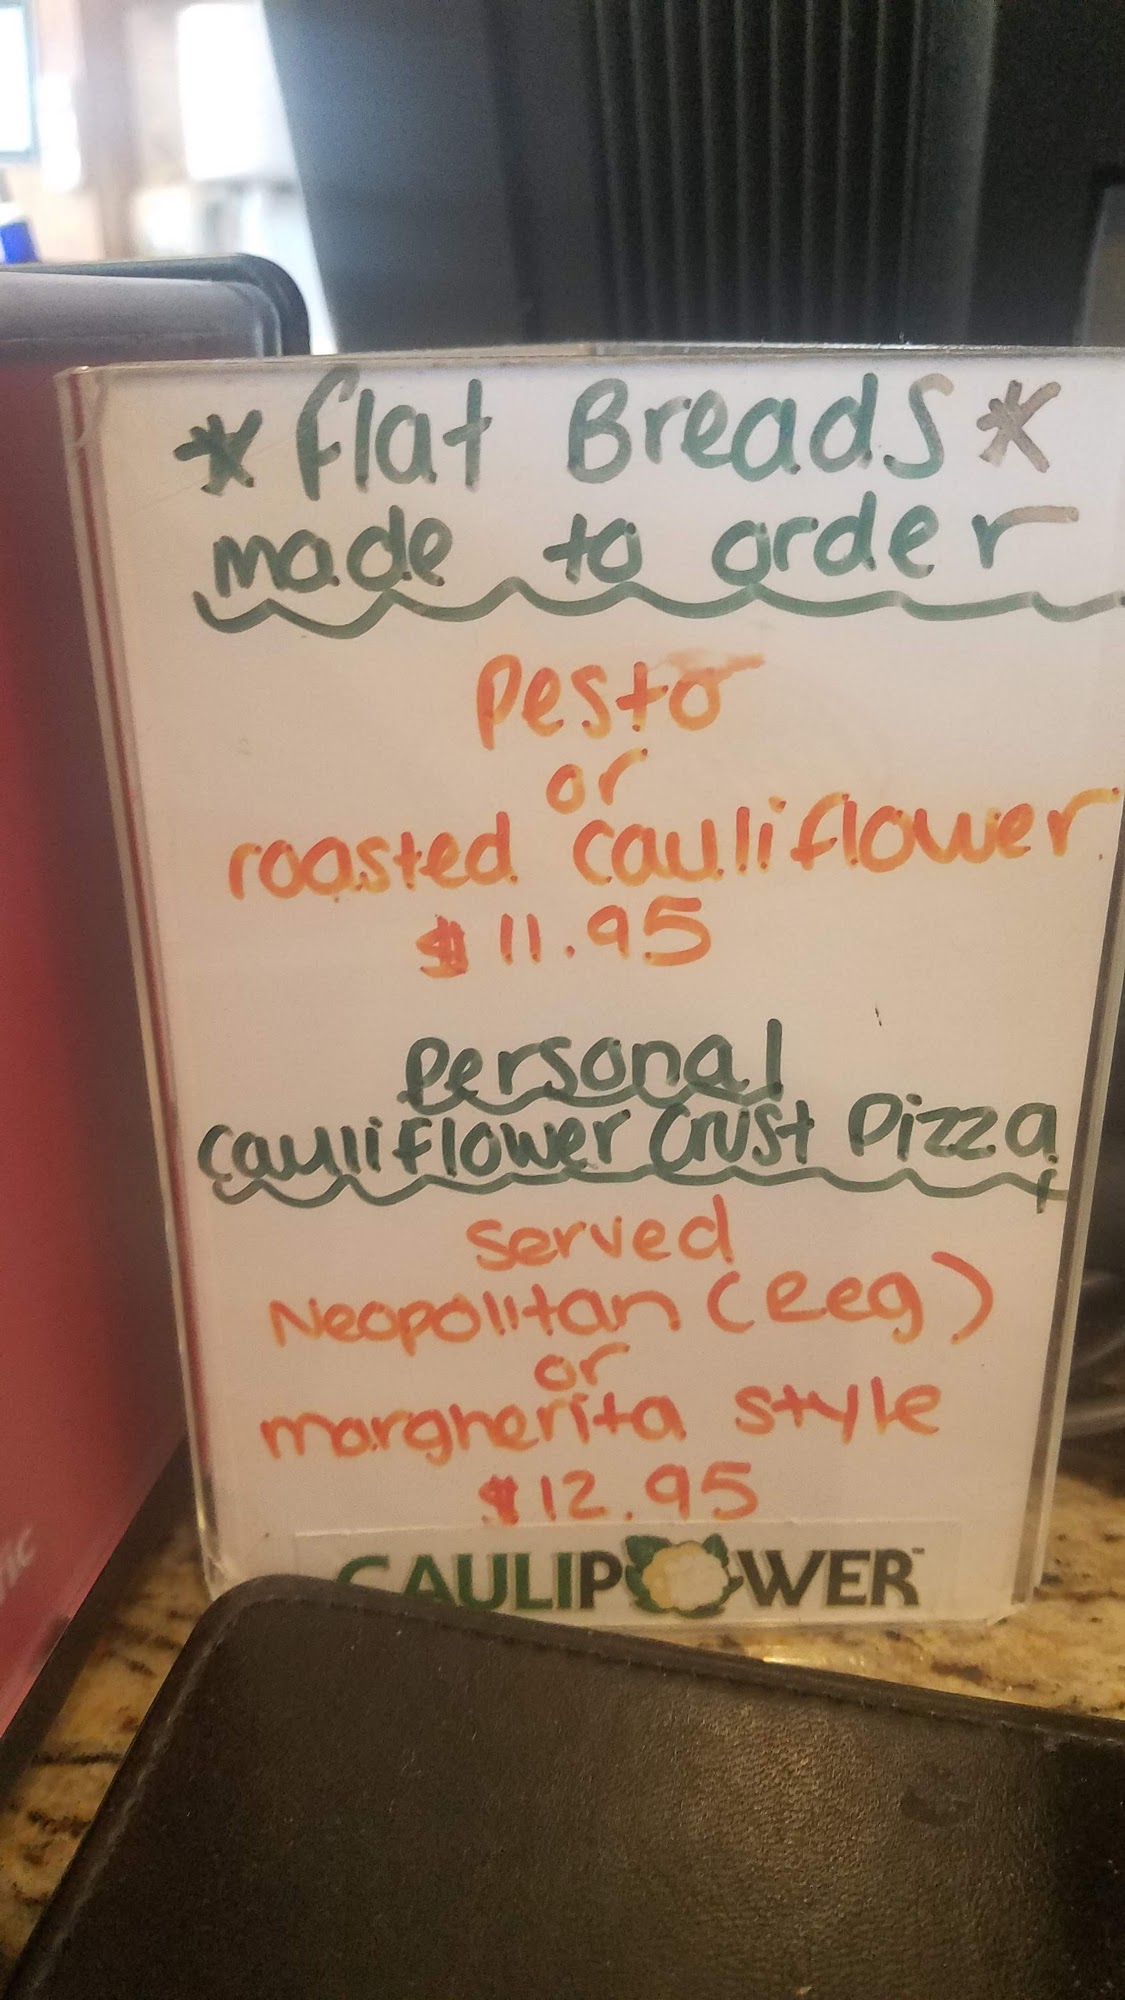 *Flat Breads*
made to order
Pesto
or
roasted cauliflower
$11.95
Personal
Cauliflower Crust Pizza
Served
Neopolitan (reg)
or
margherita style
$12.95
CAULIPOWER™